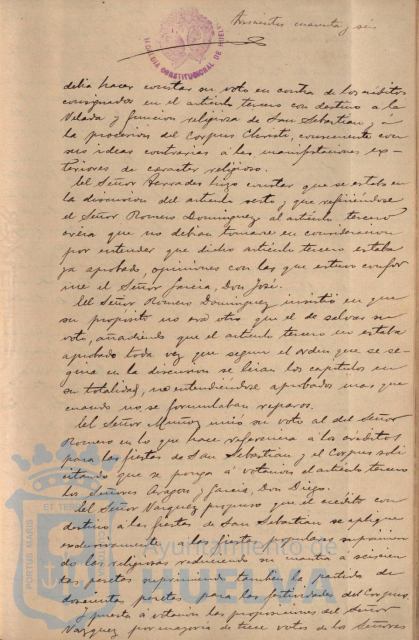 Doscientos cuarenta y seis
ALCALDIA CONSTITUCIONAL DE HUELVA
debia hacer constar su voto en contra de los créditos
consignados en el artículo tercero con destino a la
Velada y funcion religiosa de San Sebastian, y á
la procesion del Corpus Christi, consecuente con
sus ideas contrarias á las manifestaciones ex-
teriores de caracter religioso.
El Señor Herrades hizo constar que se estaba en
la discusion del artículo sesto, y que refiriendose
el Señor Romero Dominguez al artículo tercero
creia que no debian tomarse en consideracion
por entender que dicho artículo tercero estaba
ya aprobado, opiniones con las que estuvo confor
me el Señor Garcia, Don José.
El Señor Romero Dominguez insistió en que
su propósito no era otro que el de salvar su
voto, añadiendo que el artículo tercero no estaba
aprobado toda vez que segun el orden que se se-
guia en la discusion se leian los capítulos en
su totalidad, no entendiendose aprobados mas que
cuando no se formulaban reparos.
El Señor Muñoz unió su voto al del Señor
Romero en lo que hace referencia a los créditos
para las fiestas de San Sebastian y el Corpus soli
citando que se ponga á votacion el artículo tercero
los Señores Aragon y Garcia, Don Diego.
El Señor Vazquez propuso que el crédito con
destino á las fiestas de San Sebastian se aplique
exclusivamente a los festejos populares suprimien
do las religiosas reduciendo su cuantia á seiscien
tas pesetas suprimiendo tambien la partida de
doscientas pesetas para las festividades del Corpus.
Y puesta á votacion las proposiciones del Señor
Vazquez por mayoria de trece votos de los Señores
PORTUS MARIS
ET TERRAE
Ayuntamiento de
HUELVA